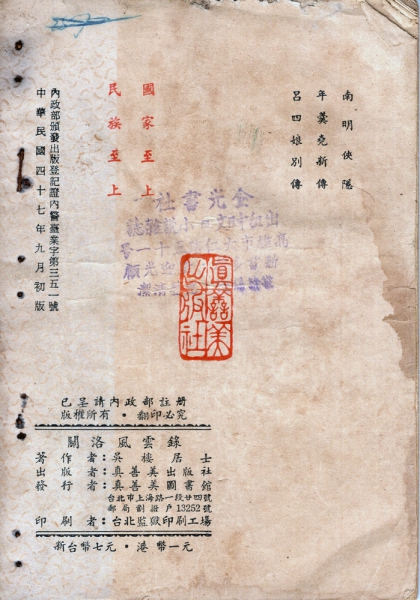 南明俠隱
年羹堯新傳
呂四娘別傳
國家至上
民族至上
金光書社
出租
小說雜誌
真善美
出版社
內政部頒發出版登記證內警臺業字第三五一號
中華民國四十七年九月初版
已呈請內政部註冊
版權所有・翻印必究
關洛風雲錄
著作者：吳樓居士
出版者：真善美出版社
發行者：真善美圖書館
台北市上海路一段廿四號
郵局劃撥戶13252號
印刷者：台北監獄印刷工場
新台幣七元・港幣一元